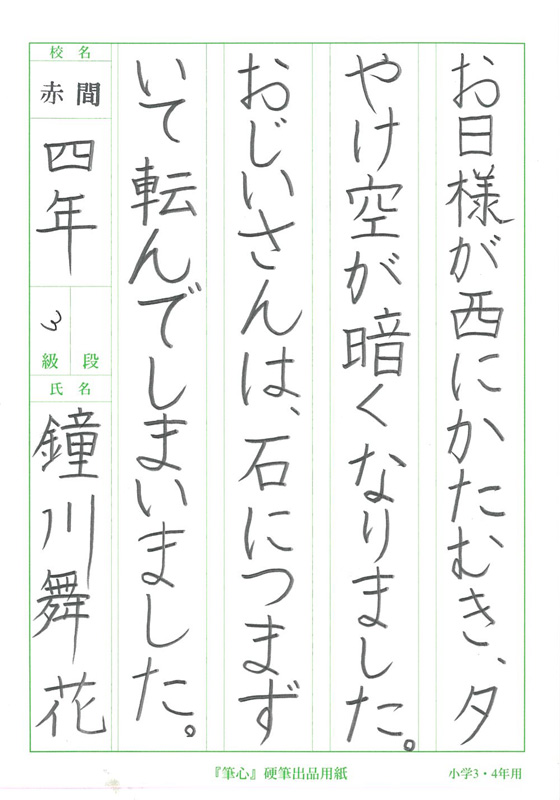 お日様が西にかたむき、夕
やけ空が暗くなりました。
おじいさんは、石につまず
いて転んでしまいました。
校名
赤間
四年
3
級 段
氏名
鐘川舞花
『筆心』硬筆出品用紙
小学3・4年用